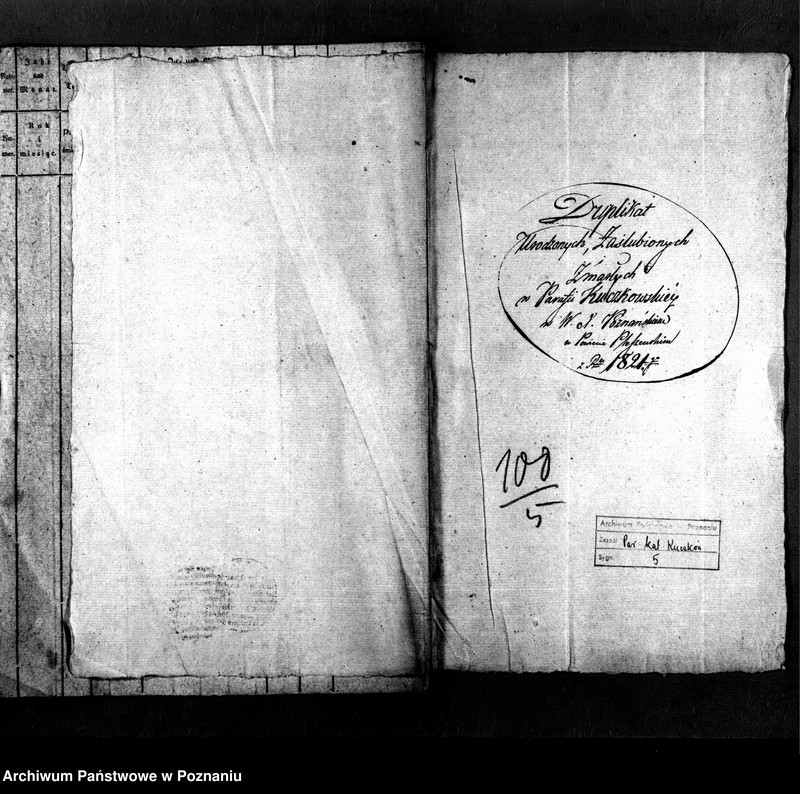 Jahr
und
Monat.
Rok
i
miesiąc.
Duplikat
Urodzonych, Zaślubionych
Zmarłych
w Parafii Kuczkowskiéy
w W. X. Poznańskim
w Powiecie Pleszewskim
z Rku 1821.
108
5
Archiwum Państwowe w Poznaniu
Zespół Par. kat Kuczków
Sygn. 5
Archiwum Państwowe w Poznaniu